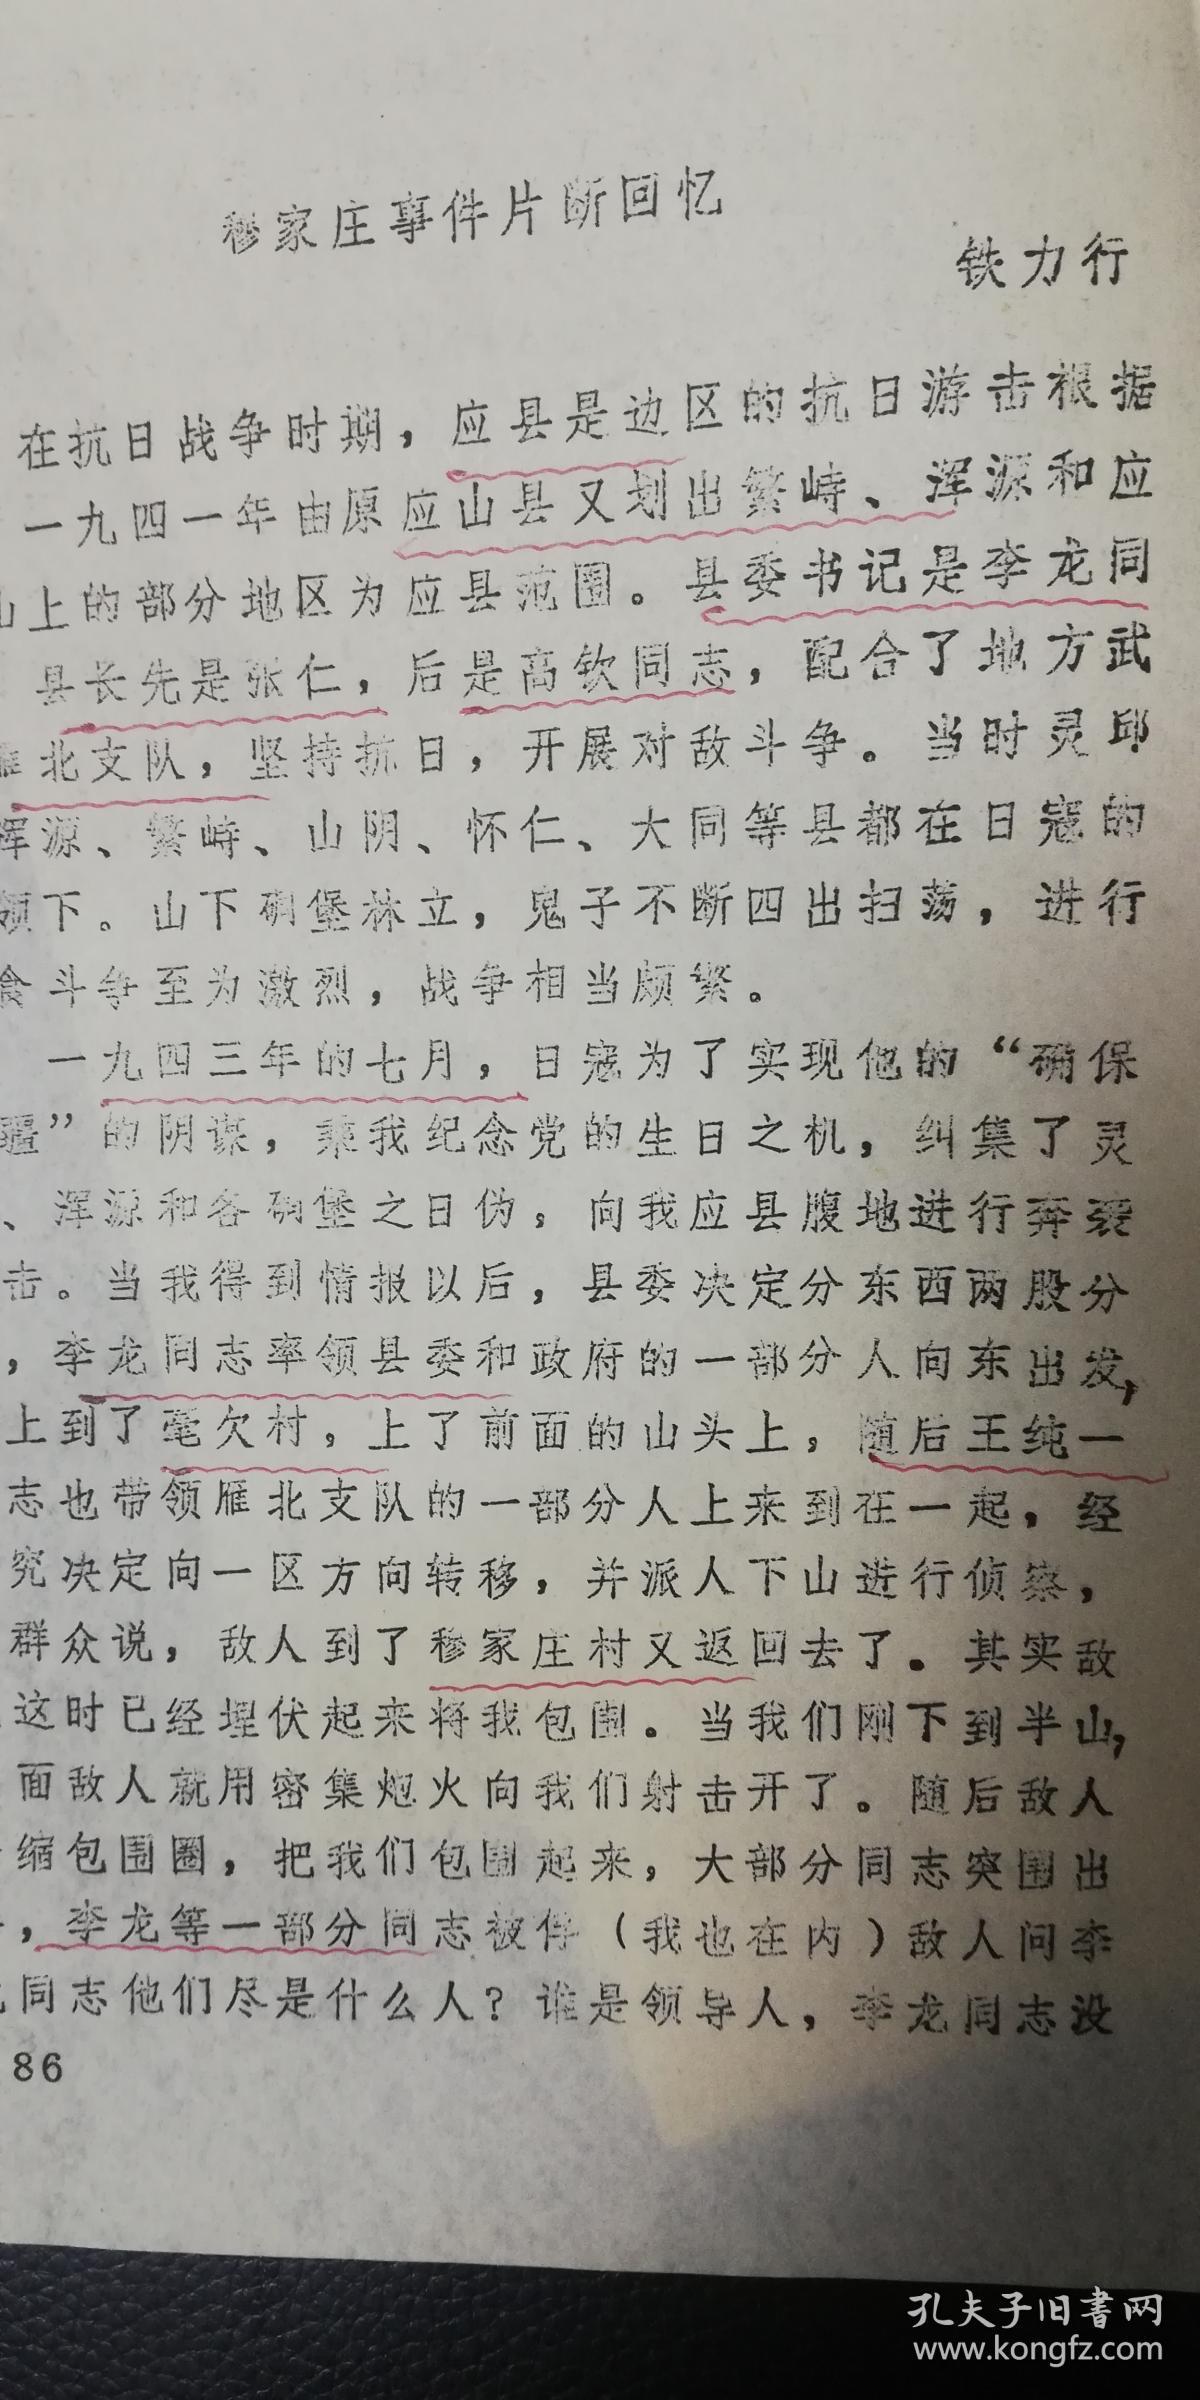 穆家庄事件片断回忆
铁力行
在抗日战争时期，应县是边区的抗日游击根据
一九四一年由原应山县又划出繁峙、浑源和应
山上的部分地区为应县范围。县委书记是李龙同
县长先是张仁，后是高钦同志，配合了地方武
雁北支队，坚持抗日，开展对敌斗争。当时灵邱
浑源、繁峙、山阴、怀仁、大同等县都在日寇的
领下。山下碉堡林立，鬼子不断四出扫荡，进行
食斗争至为激烈，战争相当频繁。
一九四三年的七月，日寇为了实现他的“确保
疆”的阴谋，乘我纪念党的生日之机，纠集了灵
、浑源和各碉堡之日伪，向我应县腹地进行奔袭
击。当我得到情报以后，县委决定分东西两股分
，李龙同志率领县委和政府的一部分人向东出发，
上到了毫欠村，上了前面的山头上，随后王纯一
志也带领雁北支队的一部分人上来到在一起，经
究决定向一区方向转移，并派人下山进行侦察，
群众说，敌人到了穆家庄村又返回去了。其实敌
这时已经埋伏起来将我包围。当我们刚下到半山，
面敌人就用密集炮火向我们射击开了。随后敌人
缩包围圈，把我们包围起来，大部分同志突围出
，李龙等一部分同志被俘（我也在内）敌人问李
龙同志他们尽是什么人？谁是领导人，李龙同志没
86
孔夫子旧书网
www.kongfz.com